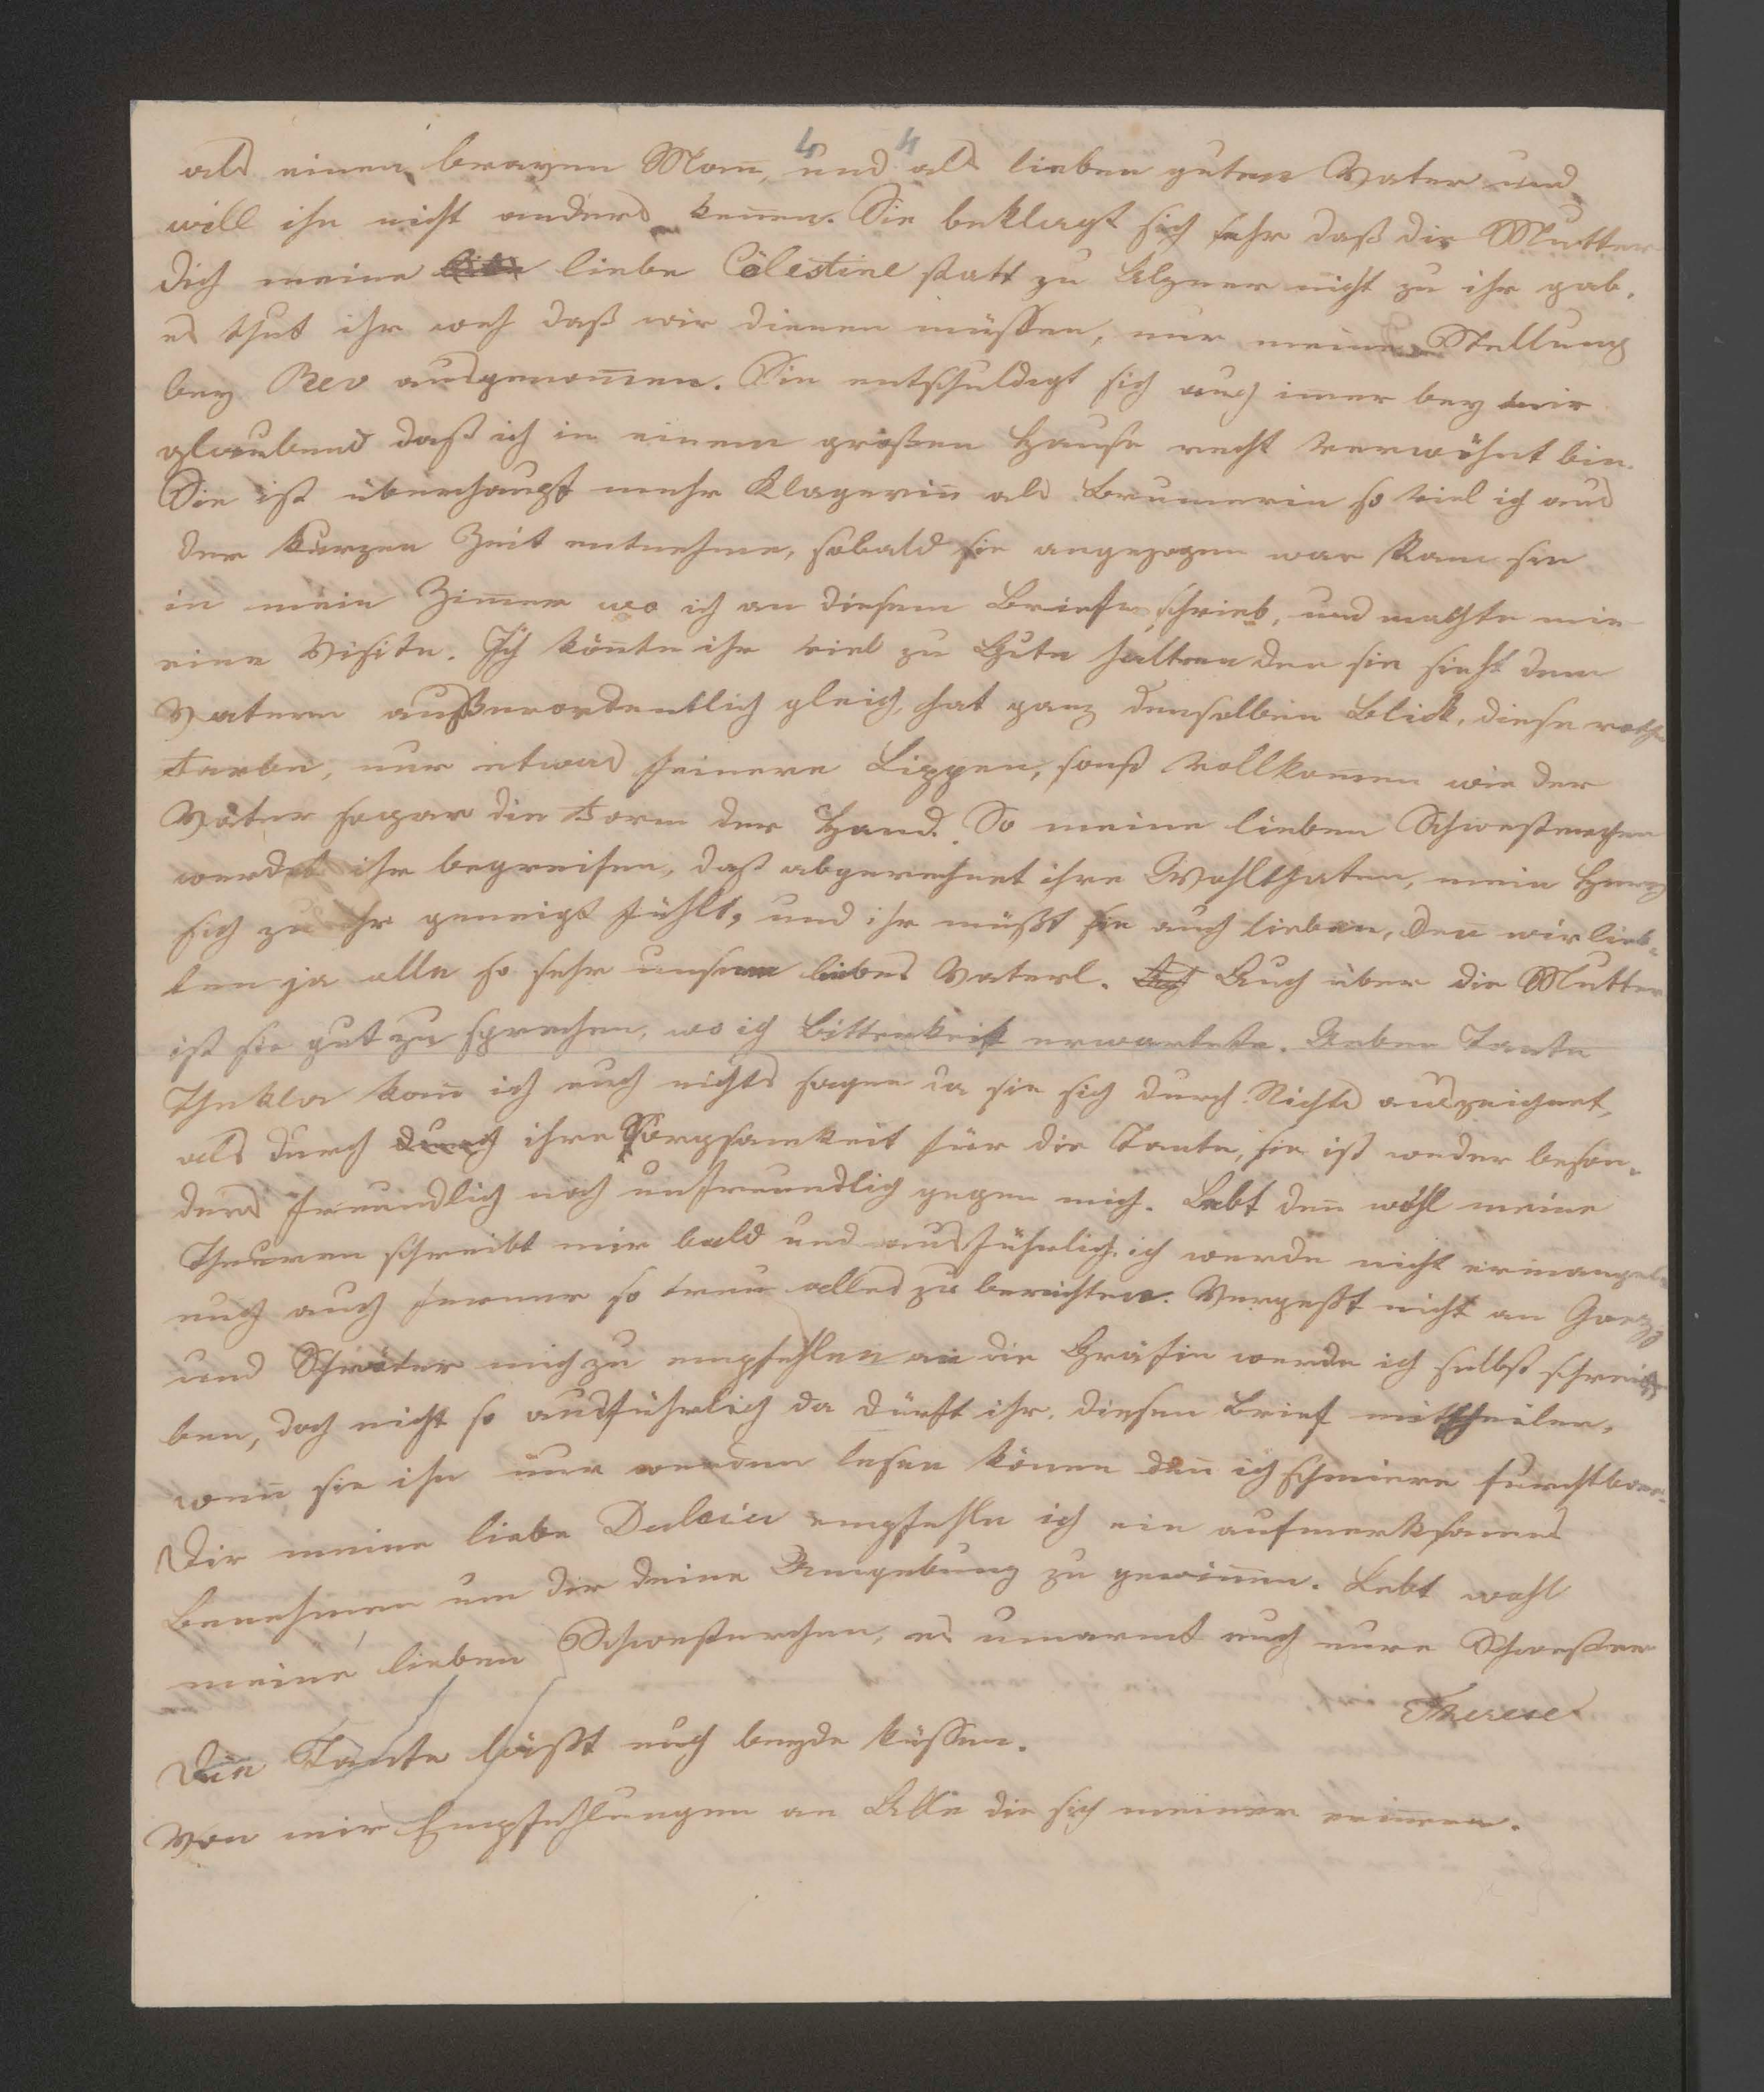 4 4
als einen braven Mann, und als lieben guten Vater und
will ihn nicht anders kennen. Sie beklagt sich sehr daß die Mutter
dich meine liebe Cölestine statt zu nicht zu ihr gab.
es thut ihr weh daß wir dienen müssen, nur meine Stellung
bey Rev ausgenommen. Sie entschuldigt sich auch imer bey mir
glaubend daß ich in einem großen Hause recht verwöhnt bin.
Sie ist überhaupt mehr Klagerin als Brumerin so viel ich aus
der kurzen Zeit entnehme, sobald sie angezogen war kam sie
in mein Zimmer wo ich an diesem Briefe schrieb, und machte mir
eine Visite. Ich könnte ihr viel zu Gute halten den sie sieht dem
Vatern außerordentlich gleich, hat ganz denselben Blick, diese rothe
Farbe, nur etwas feinere Lippen, sonst vollkommen wie der
Vater sogar die Form der Hand. So meine lieben Schwesterchen
werdet ihr begreifen, daß abgerechnet ihre Wohlthaten, mein Herz
sich zu ihr geneigt fühlt, und ihr müßt sie auch lieben, den wir lieb-
ten ja alle so sehr unser liebes Vaterl. Auch über die Mutter
ist sie gut zu sprechen, wo ich Bitterkeit erwartete. Ueber Tante
Thekla kann ich euch nichts sagen da sie sich durch Nichts auszeichnet,
als durch durch ihre Sorgsamkeit für die Tante, sie ist weder beson-
ders freundlich noch unfreundlich gegen mich. Lebt den wohl meine
Theuren schreibt mir bald und ausführlich, ich werde nicht ermangeln
euch auch ferner so treu alles zu berichten. Vergeßt nicht an
und mich zu empfehlen an die Gräfin werde ich selbst schrei-
ben, doch nicht so ausführlich da dürft ihr diesen Brief mittheilen,
wenn sie ihn nur werden lesen können den ich schmiere furchtbar.
Dir meine liebe empfehle ich ein aufmerksames
Benehmen um dir deine Umgebung zu gewinnen. Lebt wohl
meine lieben Schwesterchen, es umarmt euch eure Schwester
Therese
Die Tante läßt euch beyde küssen.
Von mir Empfehlungen an Alle die sich meiner erinern.